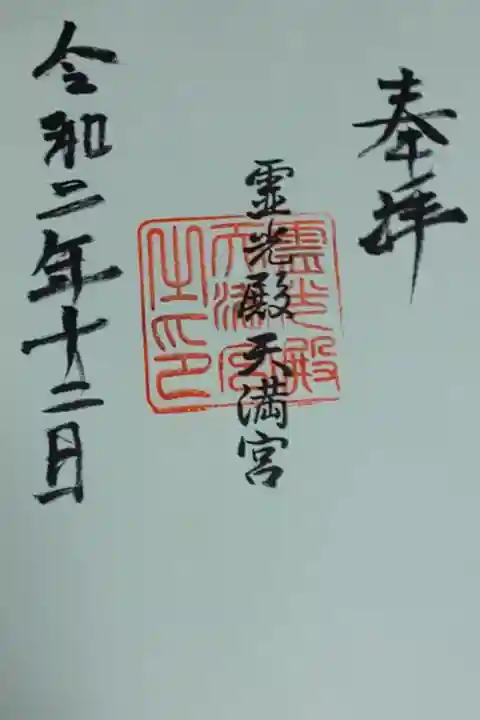 奉拝
霊光殿天満宮
霊光殿
天満宮
之印
令和二年十二月